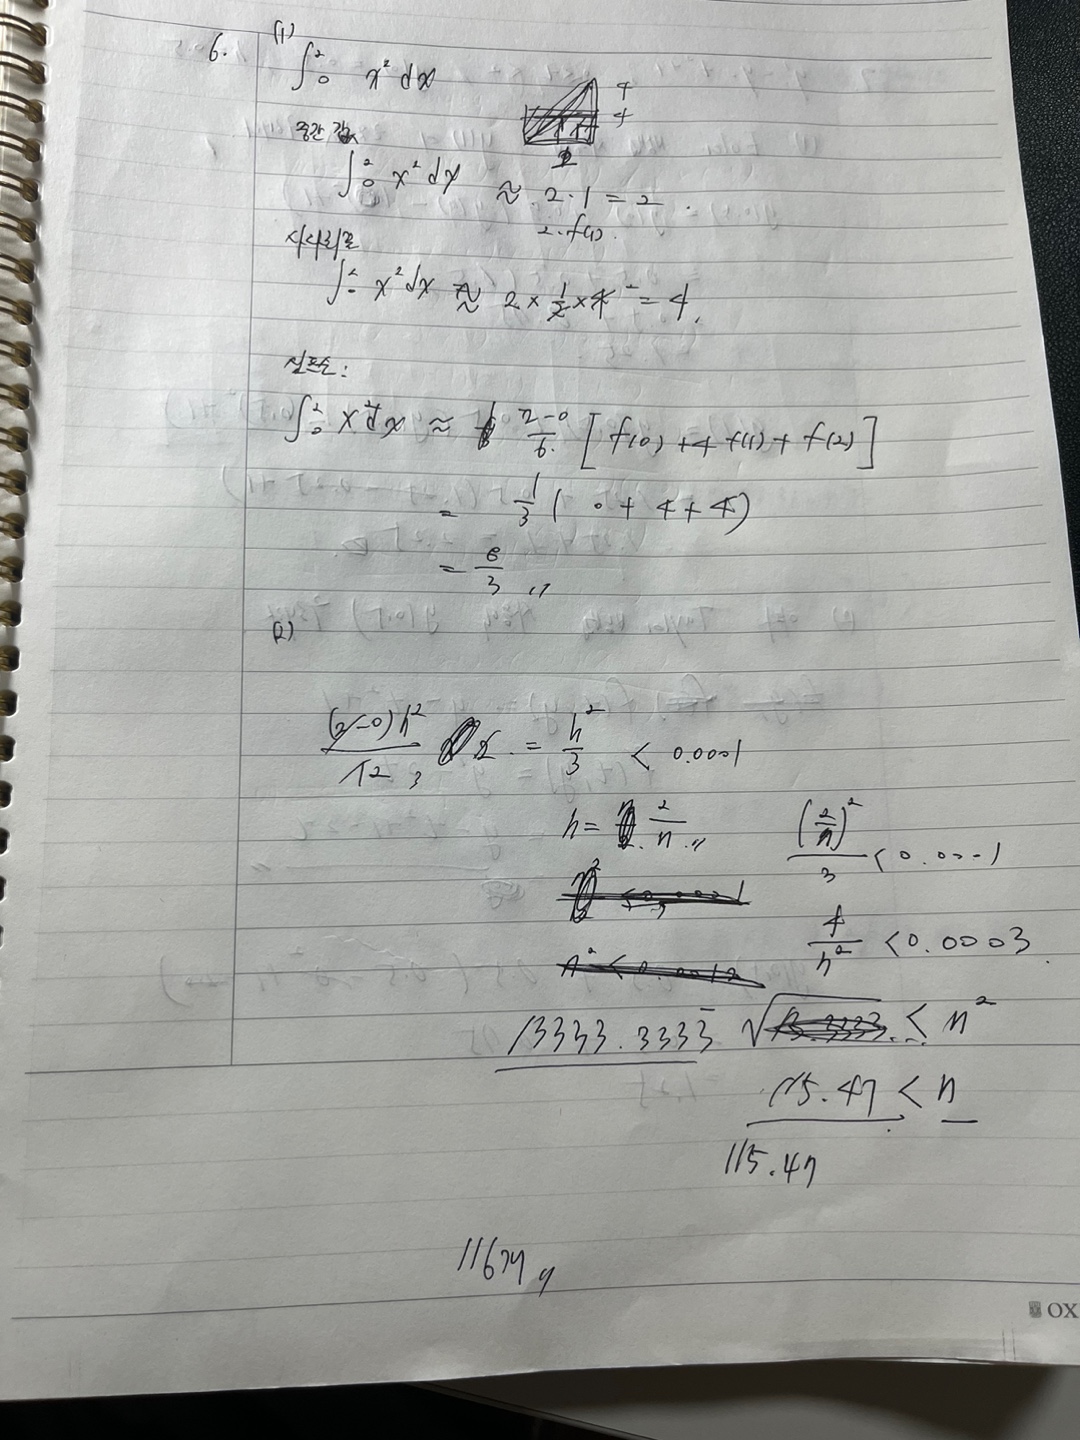 6. (1) ∫₀² x² dx
4
4
2
중간 값
∫₀² x² dx ≈ 2·1 = 2.
2·f(1).
사다리꼴
∫₀² x² dx ≈ 2 × 1/2 × 4 = 4.
심프슨:
∫₀² x² dx ≈ (2-0)/6. [f(0) + 4 f(1) + f(2)]
= 1/3 (0 + 4 + 4)
= 8/3 ,,
(2)
(2-0)h²/12 2. = h²/3 < 0.0001
h = 2/n ,,
(2/n)²/3 < 0.0001
4/n² < 0.0003.
13333.3333 ≤ n²
115.47 < n
115.47
116개 ,,
OX